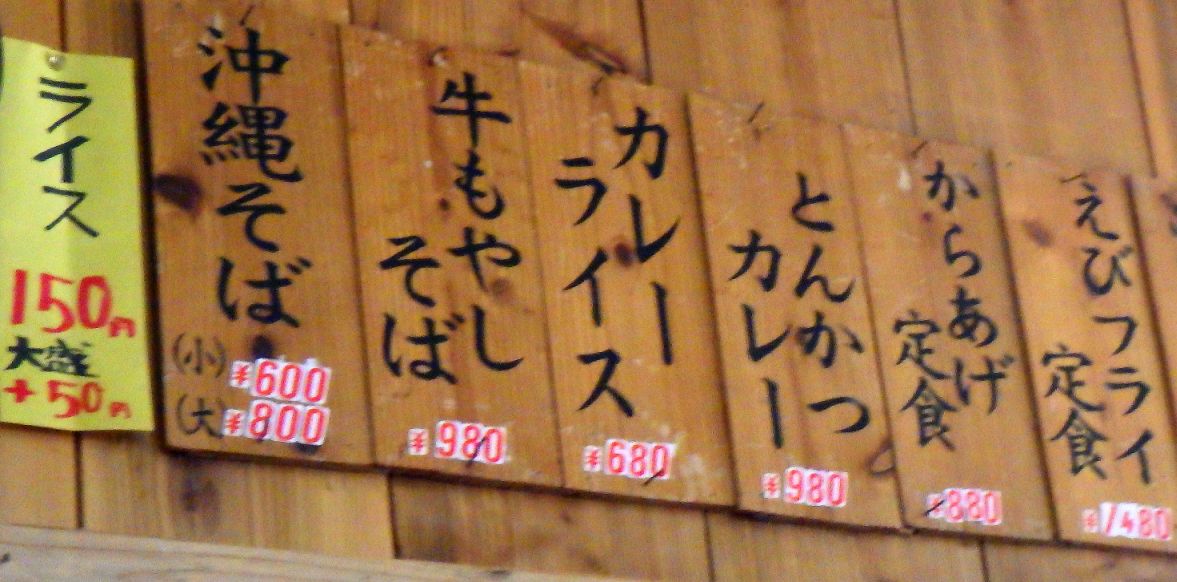 ライス
150円
大盛
+50円
沖縄そば
(小) ¥600
(大) ¥800
牛もやし
そば
¥980
カレー
ライス
¥680
とんかつ
カレー
¥980
からあげ
定食
¥880
えびフライ
定食
¥1480